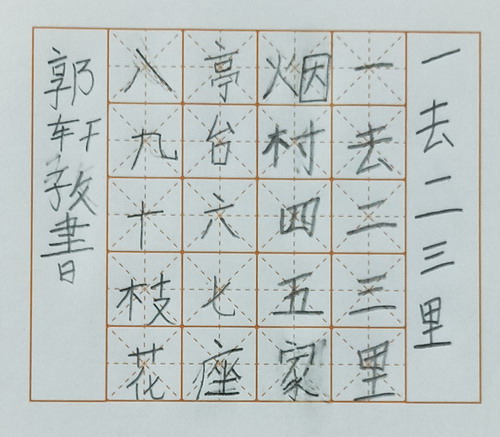 一去二三里
一去二三里
烟村四五家
亭台六七座
八九十枝花
郭轩孜書